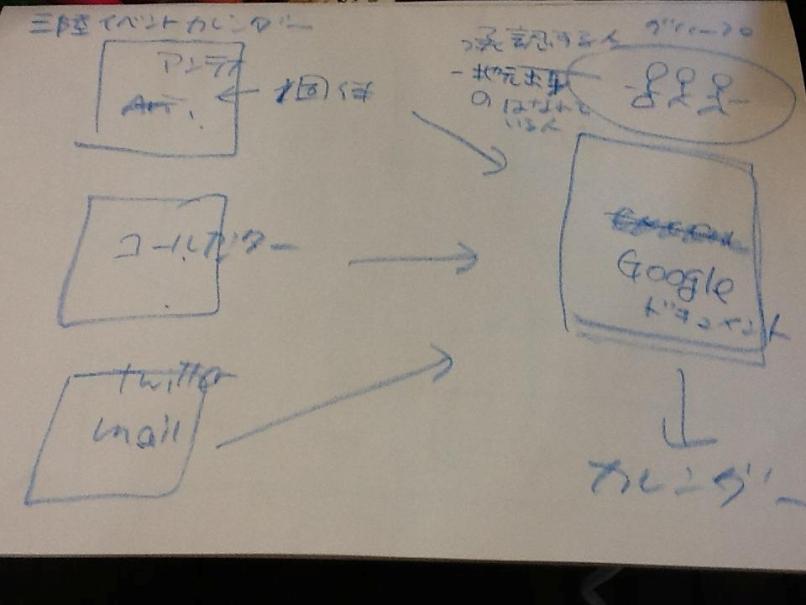 三陸イベントカレンダー
グループ
承認する人
アンテナ
のはなれて
いる人
コールセンター
Google
ドキュメント
twitter
mail
カレンダー